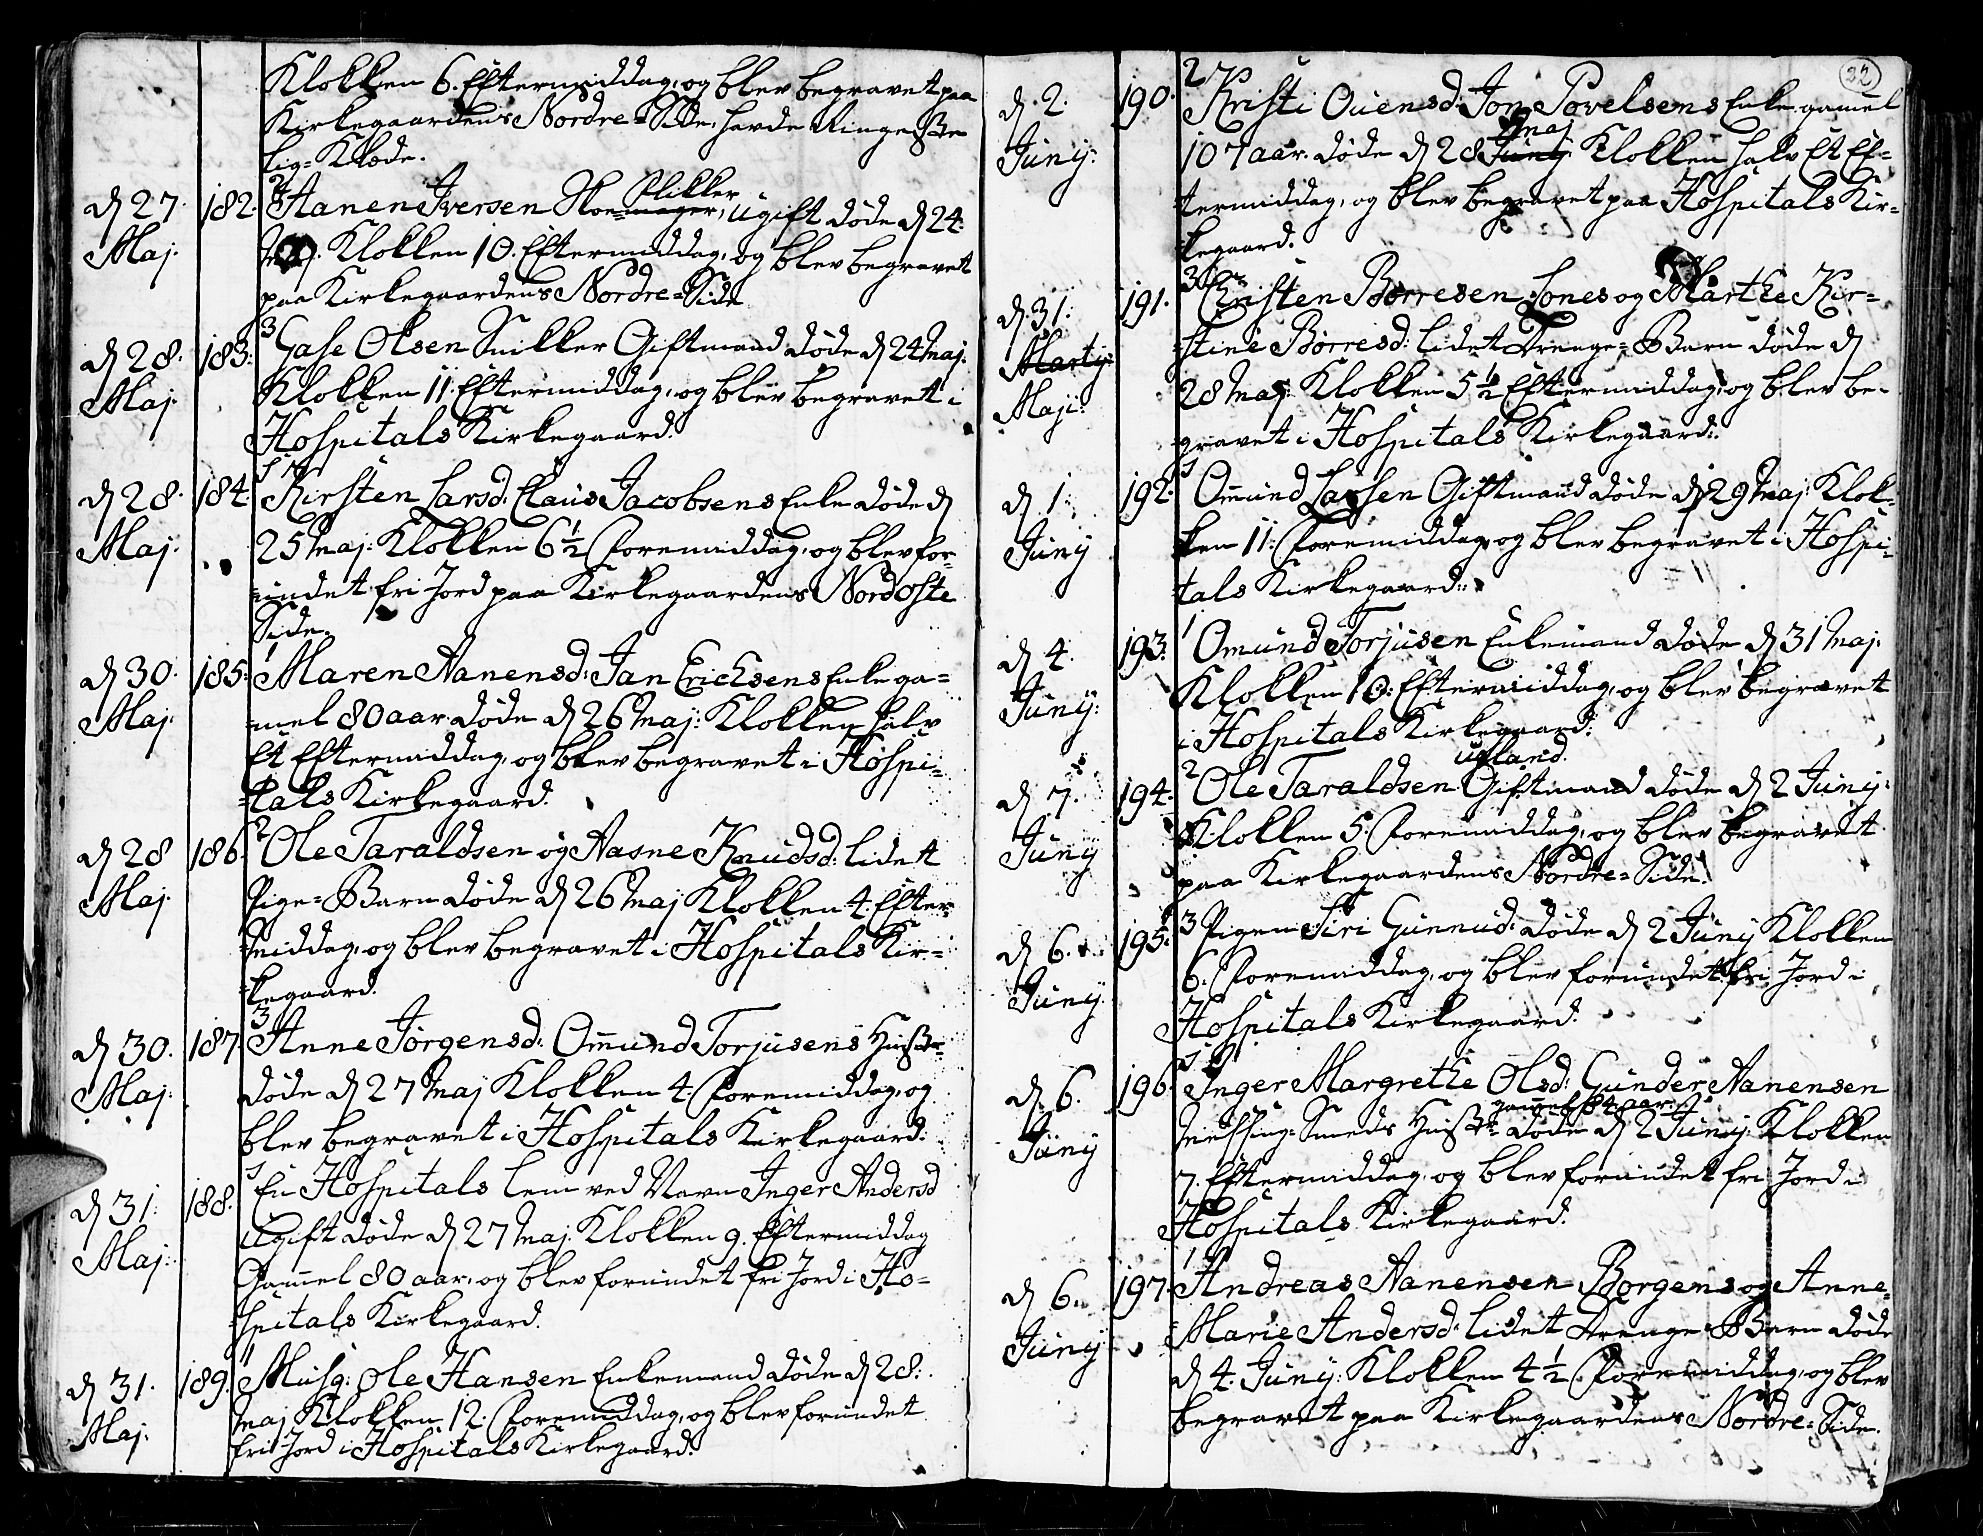 Klokken 6. Eftermiddag, og blev begravet paa
Kirkegaardens Nordre=Side, havde Ringeste
Lig=Klæde.
d 27. Maj. 182. 2 Aanen Iversen Skoe=mager, Flikker, Ugift døde d 24.
Maj. Klokken 10. Eftermiddag, og blev begravet
paa Kirkegaardens Nordre=Side
d 28. Maj. 183. 3 Gase Olsen Snikker Giftmand døde d 24 Maj.
Klokken 11. Eftermiddag, og blev begravet i
Hospitals Kirkegaard.
d 28. Maj. 184. Kirsten Larsd: Claus Jacobsens Enke døde d
25 Maj: Klokken 6½ Formiddag, og blev for=
=undet fri Jord paa Kirkegaardens Nordoste
Side.
d 30. Maj. 185. 1 Maren Aanensd: Jan Erichsens Enke ga=
=mel 80 aar døde d 26 Maj: Klokken halv
Et Eftermiddag, og blev begravet i Hospi=
=tals Kirkegaard.
d 28 Maj. 186. 2 Ole Taraldsen og Aasne Knudsd: lidet
Pige=Barn døde d 26 Maj Klokken 4. Efter=
Middag, og blev begravet i Hospitals Kir=
=kegaard.
d 30. Maj. 187. 3 Anne Jørgensd: Omund Torjusens Hustr:
døde d 27 Maj Klokken 4. Formiddag, og
blev begravet i Hospitals Kirkegaard.
d 31. Maj: 188. En Hospitals Lem ved Navn Inger Andersd
Ugift døde d 27 Maj. Klokken 9. Eftermiddag
Gammel 80 aar, og blev forundet fri Jord i Ho=
=spitals Kirkegaard.
d 31. Maj. 189. Musq: Ole Hansen Enkemand døde d 28.
Maj Klokken 12. Formiddag, og blev forundet
fri Jord i Hospitals Kirkegaard.
32
d. 2. Juny: 190. 2 Kristi Ouensd: Jon Povelsens Enke gamel
107 aar. døde d 28 Juny Maj Klokken halv Et Ef=
termiddag, og blev begravet paa Hospitals Kir=
=kegaard.
d. 31. Marty: Maji: 191. 3 Christen Børresen Lones og Marthe Kir=
=stine Børresd: lidet Drenge=Barn døde d
28 Maj: Klokken 5½ Eftermiddag, og blev be=
gravet i Hospitals Kirkegaard.
d 1. Juny 192. Omund Larsen Giftmand døde d 29 Maj Klok=
ken 11: Formiddag, og blev begravet i Hospi=
tals Kirkegaard.
d 4. Juny: 193. 1 Omund Torjusen Enkemand døde d 31 Maj.
Klokken 10: Eftermiddag, og blev begravet
i Hospitals Kirkegaard.
d 7. Juny 194. 2 Ole Taraldsen Ugland Giftmand døde d 2 Juny:
Klokken 5. Formiddag, og blev begravet
paa Kirkegaardens Nordre=Side.
d 6. Juny 195. 3 Pigen Siri Gunnud: døde d 2 Juny Klokken
6. Formiddag, og blev forundet fri Jord i
Hospitals Kirkegaard.
d 6. Juny 196. Inger Margrethe Olsd: Gunder Aanensen
Messing=Smeds Hustr: gammel 84 aar døde d 2 Juny: Klokken
7. Eftermiddag, og blev forundet fri Jord i
Hospitals Kirkegaard.
d 6. Juny 197. 1 Andreas Aanensen Borgens og Anne=
Marie Andersd: lidet Drenge=Barn døde
d 4. Juny: Klokken 4½ Formiddag, og blev
begravet paa Kirkegaardens Nordre=Side.